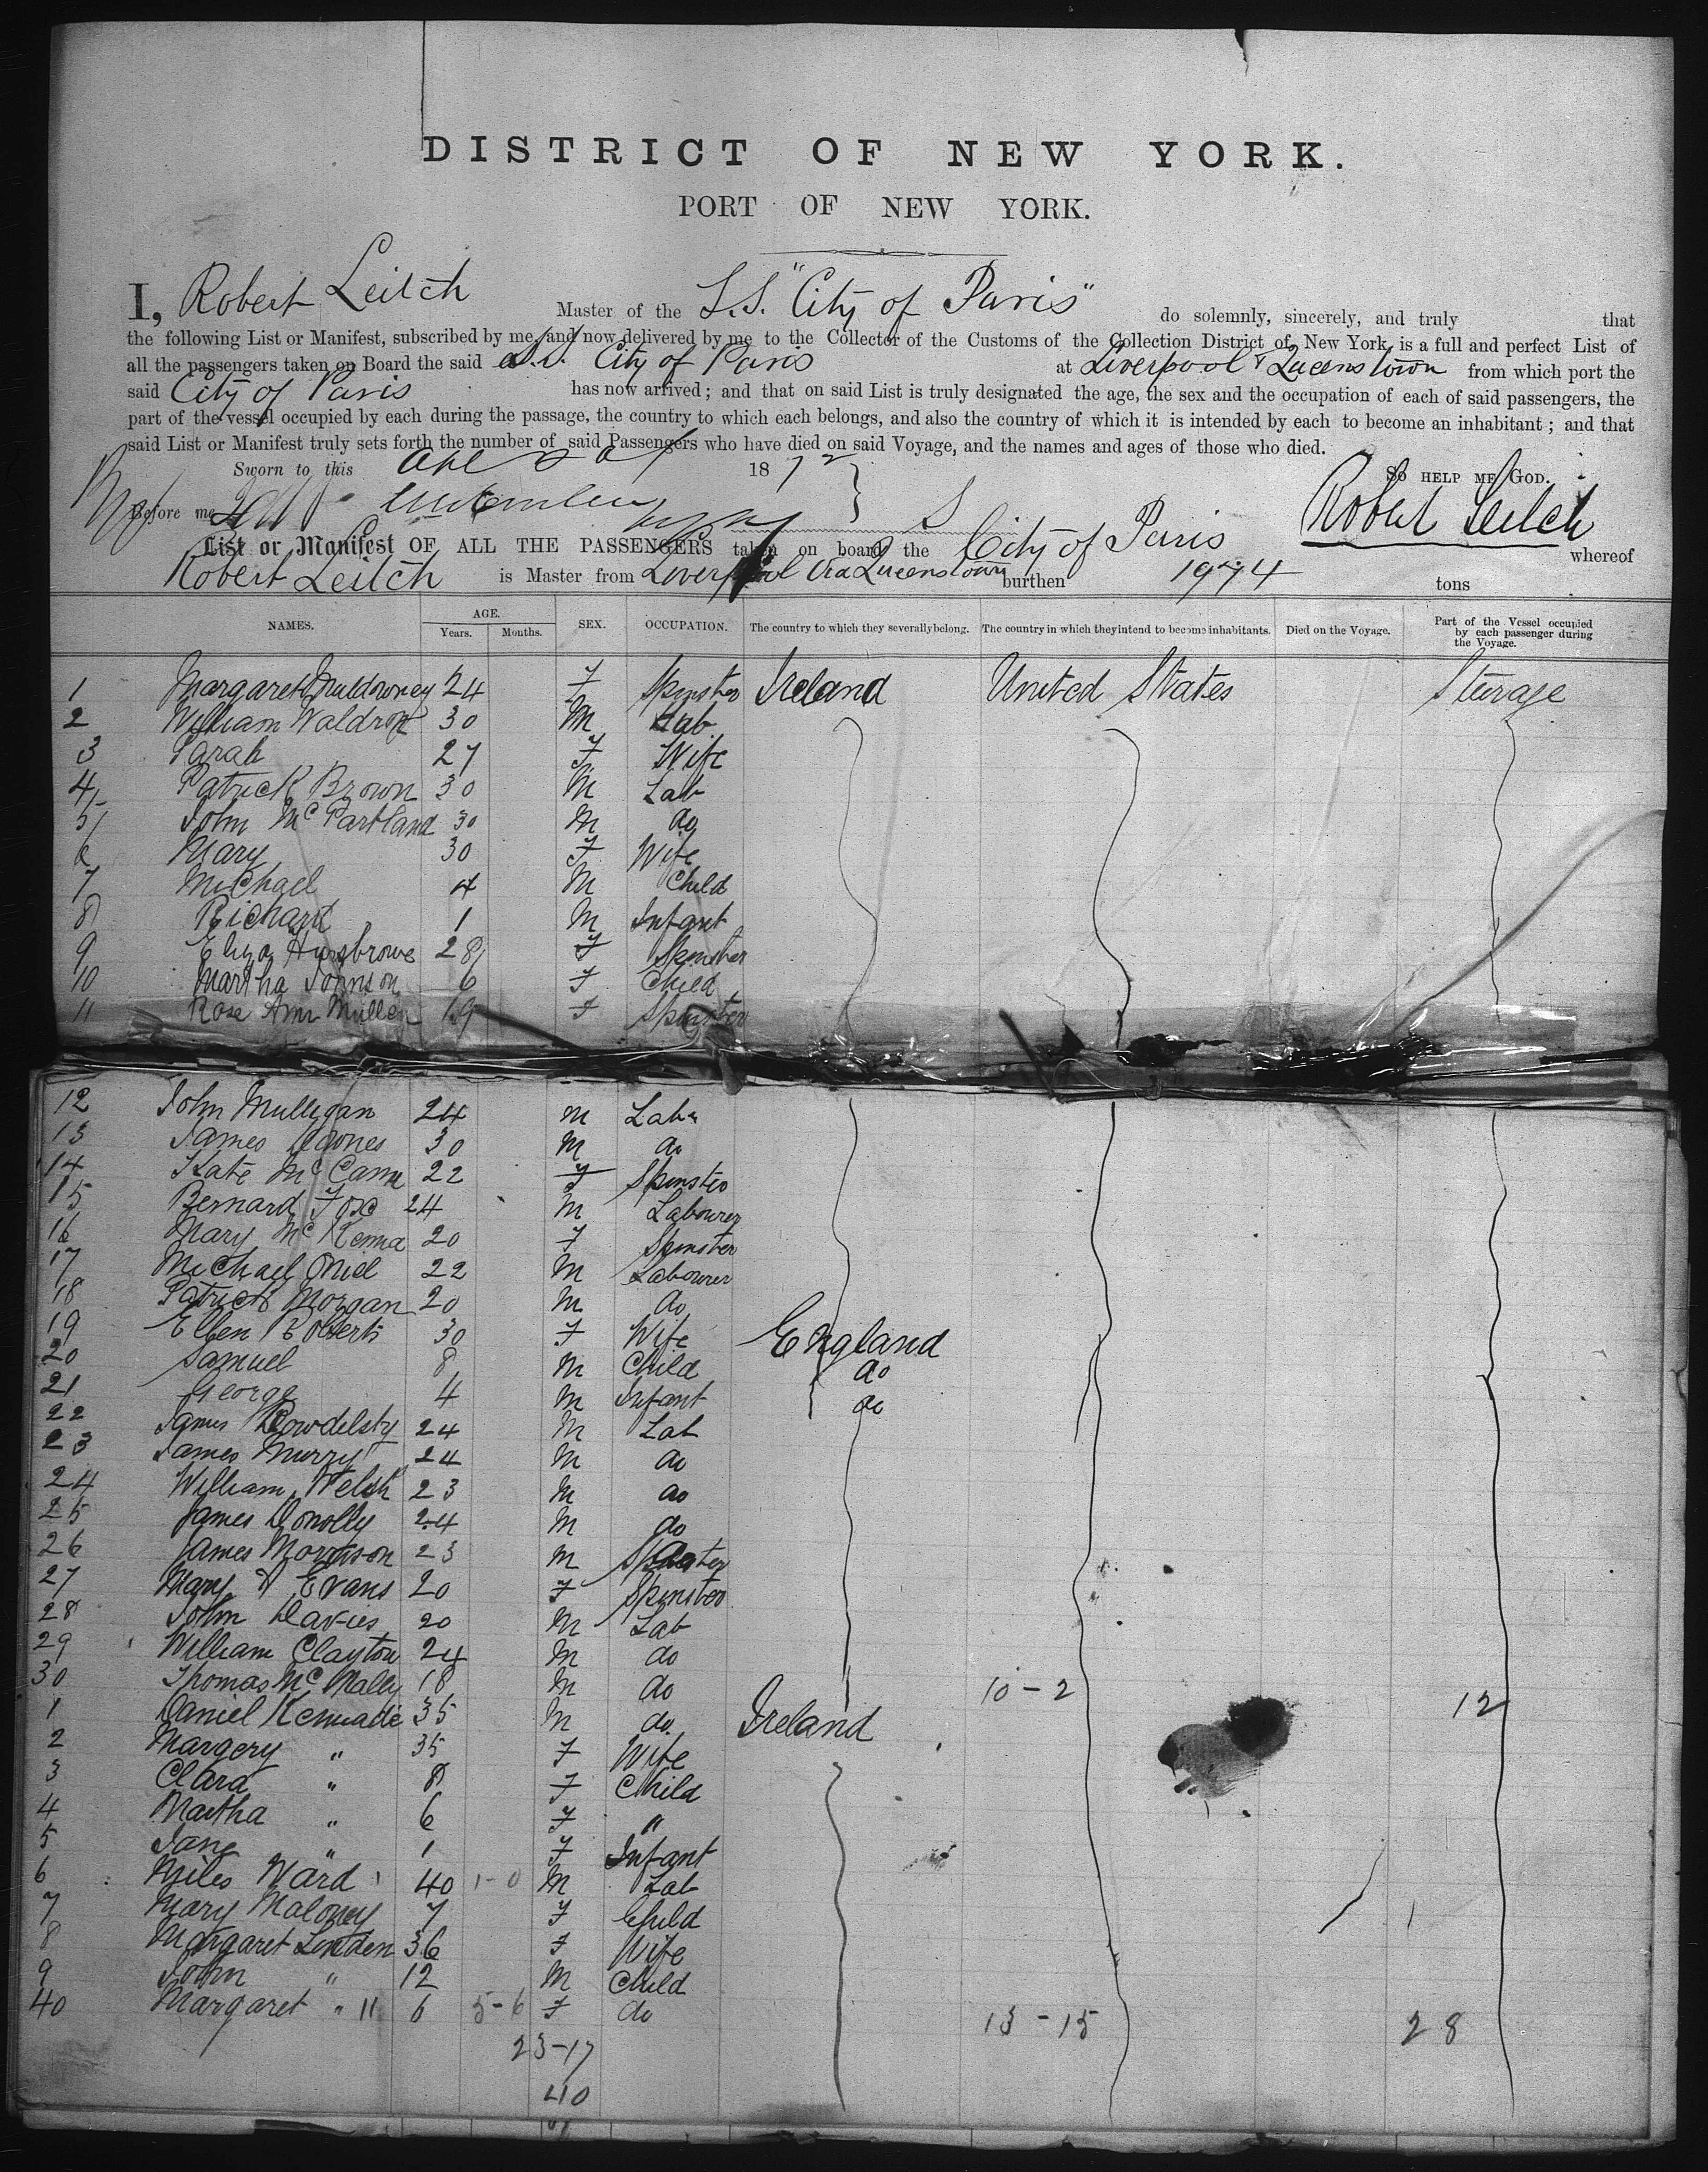 DISTRICT OF NEW YORK.
PORT OF NEW YORK.
I, Robert Leitch Master of the S.S. "City of Paris" do solemnly, sincerely, and truly that
the following List or Manifest, subscribed by me, and now delivered by me to the Collector of the Customs of the Collection District of New York, is a full and perfect List of
all the passengers taken on Board the said S.S. City of Paris at Liverpool & Queenstown from which port the
said City of Paris has now arrived; and that on said List is truly designated the age, the sex and the occupation of each of said passengers, the
part of the vessel occupied by each during the passage, the country to which each belongs, and also the country of which it is intended by each to become an inhabitant; and that
said List or Manifest truly sets forth the number of said Passengers who have died on said Voyage, and the names and ages of those who died.
Sworn to this 1872 So help me God.
Before me Robert Leitch
List or Manifest OF ALL THE PASSENGERS taken on board the S City of Paris whereof
Robert Leitch is Master from Liverpool Via Queenstown burthen 1974 tons
NAMES. AGE. Years. Months. SEX. OCCUPATION. The country to which they severally belong. The country in which they intend to become inhabitants. Died on the Voyage. Part of the Vessel occupied by each passenger during the Voyage.
1 Margaret Muldowney 24 F Spinster Ireland United States Steerage
2 William Waldron 30 M Lab
3 Sarah 27 F Wife
4 Patrick Brown 30 M Lab
5 John McPartland 30 M do
6 Mary 30 F Wife
7 Michael 4 M Child
8 Richard 1 M Infant
9 Eliza 28 F Spinster
10 Martha Johnson 6 F Child
11 Rose Ann Mullen 19 F Spinster
12 John Mulligan 24 M Lab
13 James 30 M do
14 Kate McCann 22 F Spinster
15 Bernard Fox 24 M Labourer
16 Mary McKenna 20 F Spinster
17 Michael Oniel 22 M Labourer
18 Patrick Morgan 20 M do
19 Ellen Roberts 30 F Wife England
20 Samuel 8 M Child do
21 George 4 M Infant do
22 James 24 M Lab
23 James Murry 24 M do
24 William Welsh 23 M do
25 James Donolly 24 M do
26 James Morrison 23 M do
27 Mary Evans 20 F Spinster
28 John Davies 20 M Lab
29 William Clayton 24 M do
30 Thomas McNally 18 M do 10-2 12
1 Daniel 35 M do Ireland
2 Margery " 35 F Wife
3 Clara " 8 F Child
4 Martha " 6 F "
5 Jane " 1 F Infant
6 Miles Ward 40 1-0 M Lab
7 Mary Maloney 7 F Child
8 Margaret Linden 36 F Wife
9 John " 12 M Child
40 Margaret " 11 6 5-6 F do 13-15 28
23-17
40